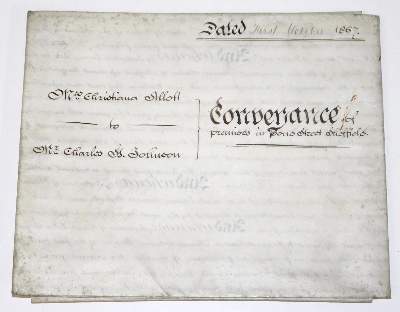 Dated First October 1867.
Mrs Christiana Allott
to
Mr Charles H. Johnson
Conveyance of
premises in Pond Street Sheffield.